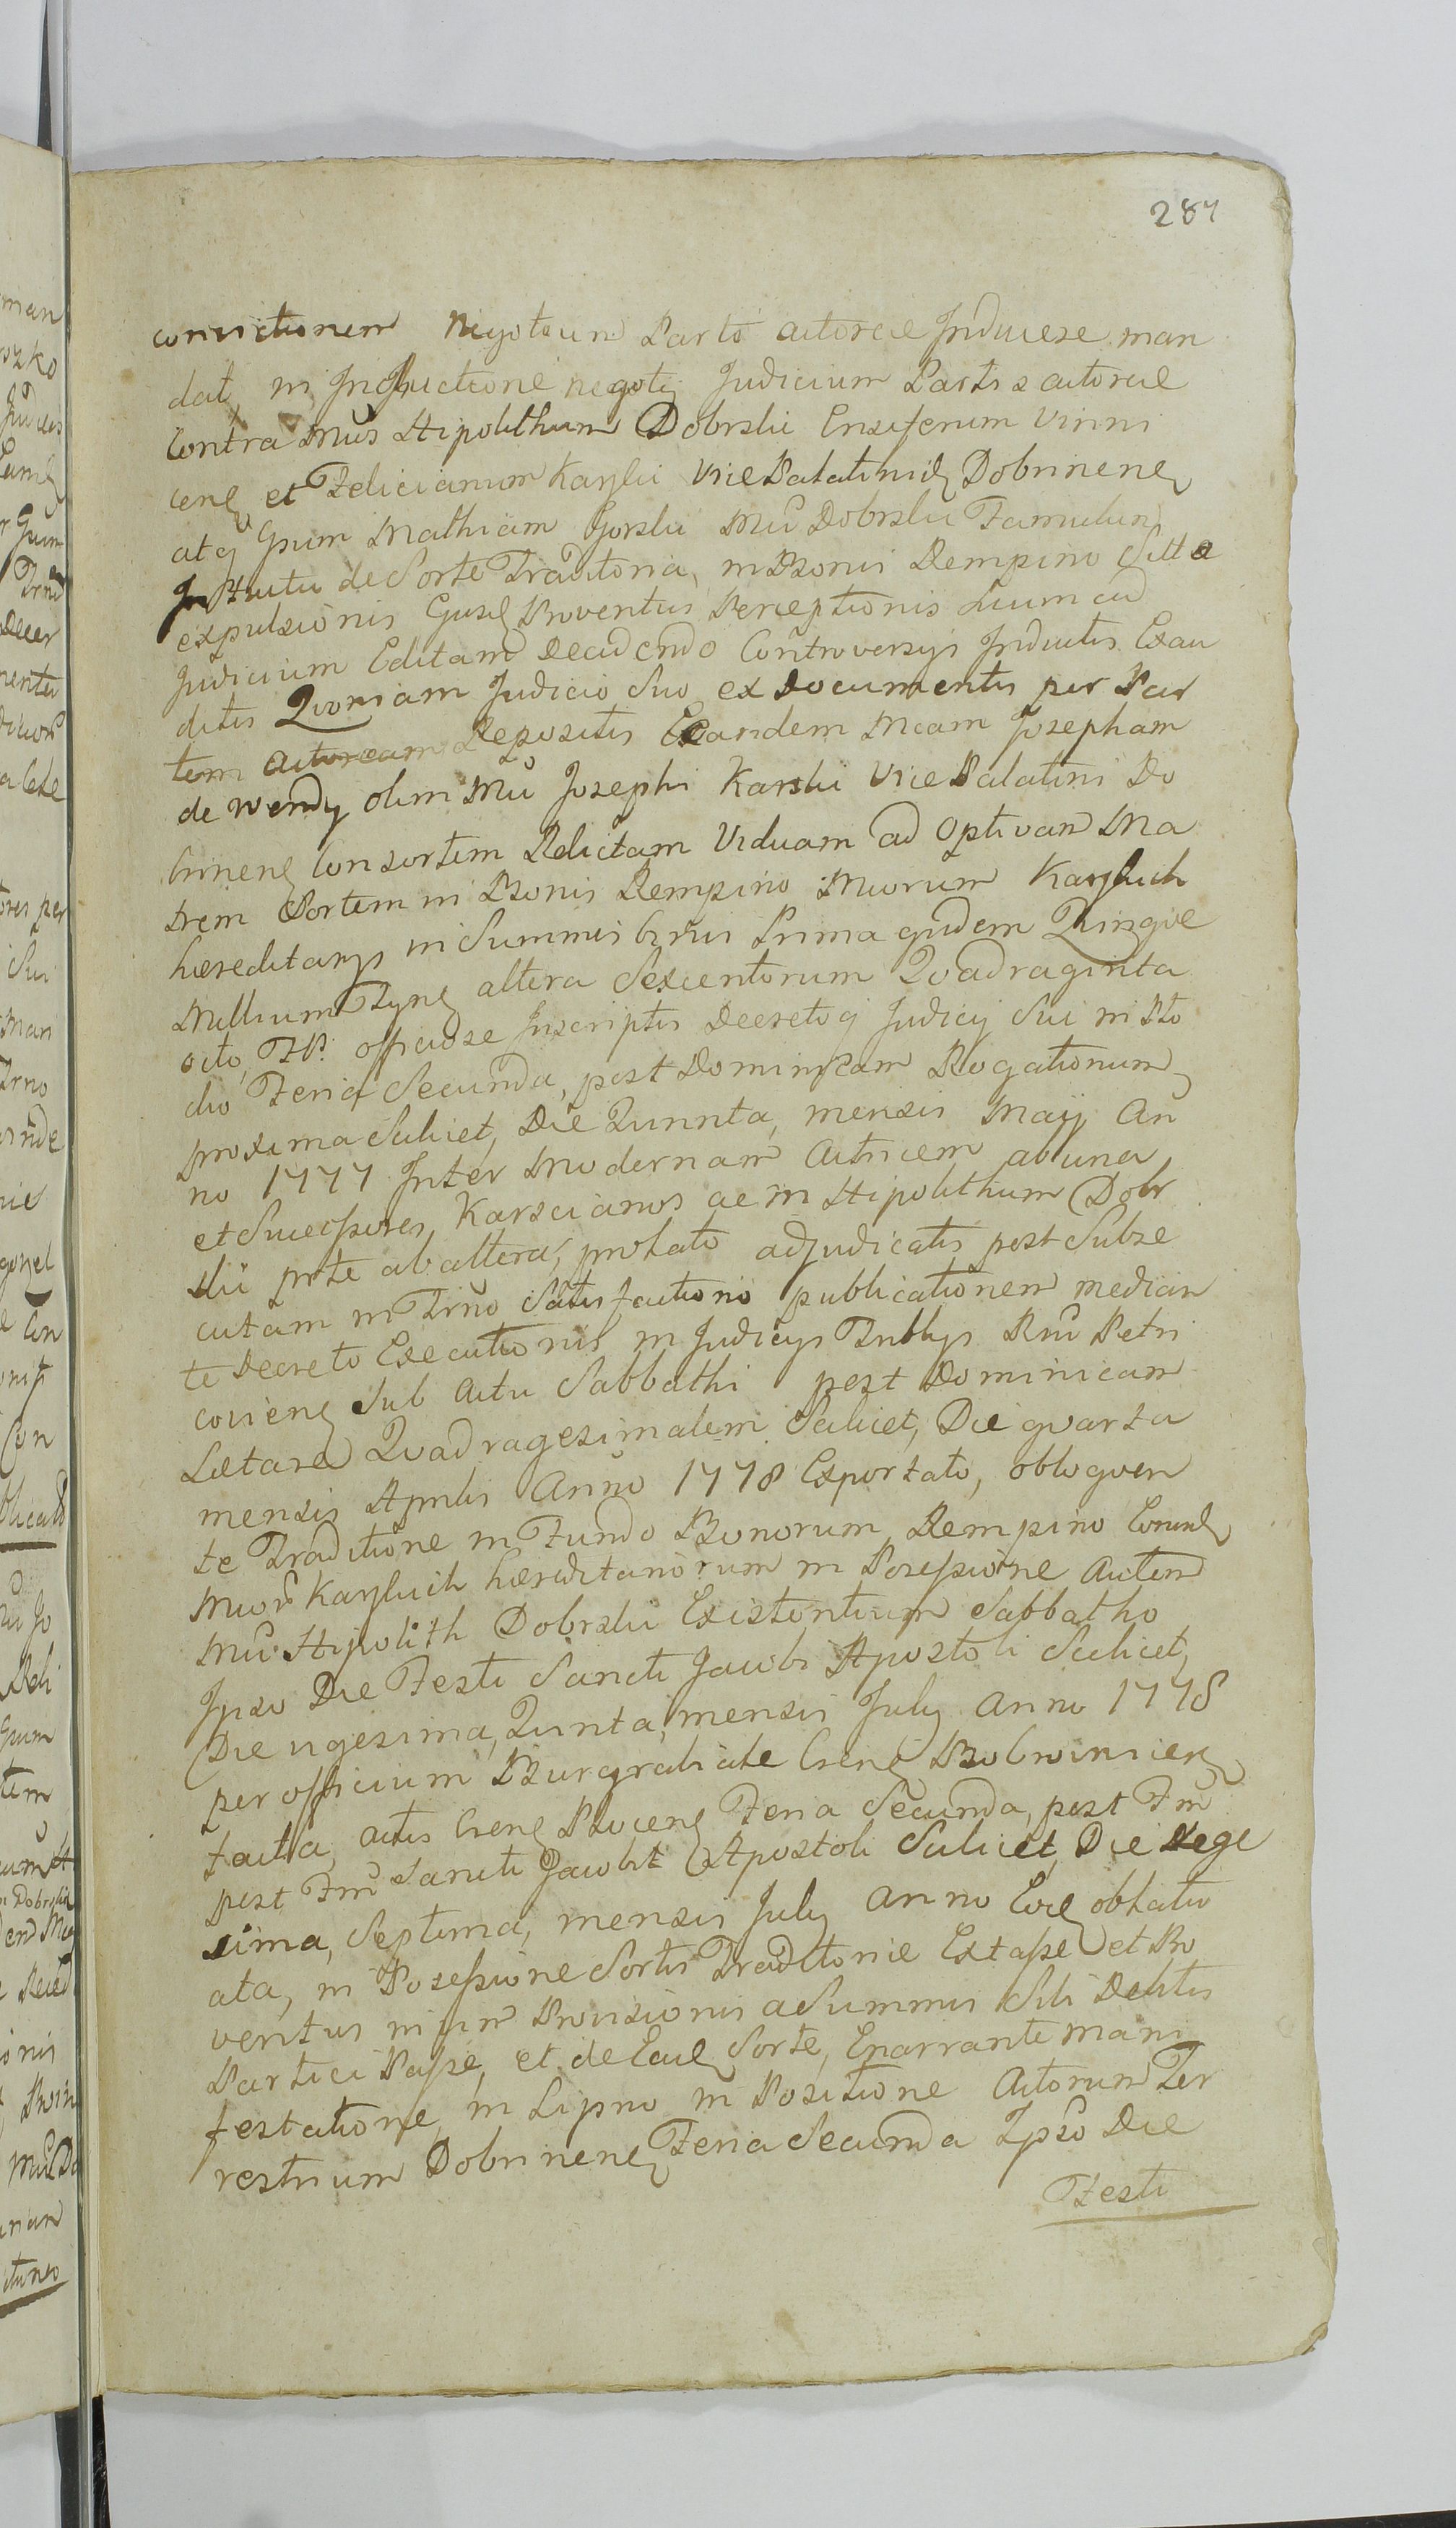 287
convictionem Negotium Parti actoreæ Inducere man
dat, in Inductione negotij Judicium Partis actoreæ
Contra Mcũs Hipolithum Dobrski Ensiferum
cenę et Felicianum Karski VicePalatinidę Dobrinenę
atq Gnum Mathiam Gorski Mci Dobrski Famulum
Intuitu de Sorte Traditoria, in Bonis Rempino Sitta
expulsionis Ejusdę Proventus Perceptionis Suum ad
Judicium Editam Decidendo Controversijs Inductis Exau
ditis Quoniam Judicio Suo ex Documentis per Par
tem Actoream Repositis Eandem Mcam Josepham
de Wendy olim Mci Josephi Karski Vice Palatini Do
brinenę Consortem Relictam Viduam ad Optivam Ma
trem Sortem in Bonis Rempino Mcorum Karskich
hæreditarijs in Summis binis Prima quidem Quinque
Millium Tynę altera Sexcentorum Quadraginta
octo, FP. officiose Inscriptis Decretoq Judicij Sui in Plo
cko Feria Secunda, post Dominicam Rogationum
proxima Scilicet, Die Quinta, mensis Maij An
no 1777 Inter Modernam Actricem ab una,
et Sucessores, Karscianos ac m Hipolithum Dobr
ski prte ab altera, prolato adjudicatis post Subse
cutam in Trno Satisfactionis publicationem median
te Decreto Executionis in Judicijs Tribblijs Rni Petri
covienę Sub Actu Sabbathi post Dominicam
Lætare Quadragesimalem Scilicet, Die quarta
mensis Aprilis Anno 1778 Exportato, obloquen
te Traditione in Fundo Bonorum Rempino Eorundę
Mcor Karskich hæreditariorum in Posessione Autem
Mci Hipolith Dobrski Existentium Sabbatho
Ipso Die Festi Sancti Jacobi Apostoli Scilicet,
Die vigesima, Quinta, mensis July Anno 1778
per officium Burgrabiale Crenę Bobrovnicenę
facta, actis Crenę Plocenę Feria Secunda, post Fm
post Fm Sancti Jacobi Apostoli Scilicet, Die Vige
sima, Septima, mensis July Anno Eoę oblatio
ata, in Posessione Sortis Traditoriæ Extasse et Pro
ventus in Provisionis a Summis Sibi Debitis
Partici Passe, et de Eaę Sorte, Enarrante mani
festatione, in Lipno in Positione Actorum Ter
restrium Dobrinenę Feria Secunda Ipso Die
Festi